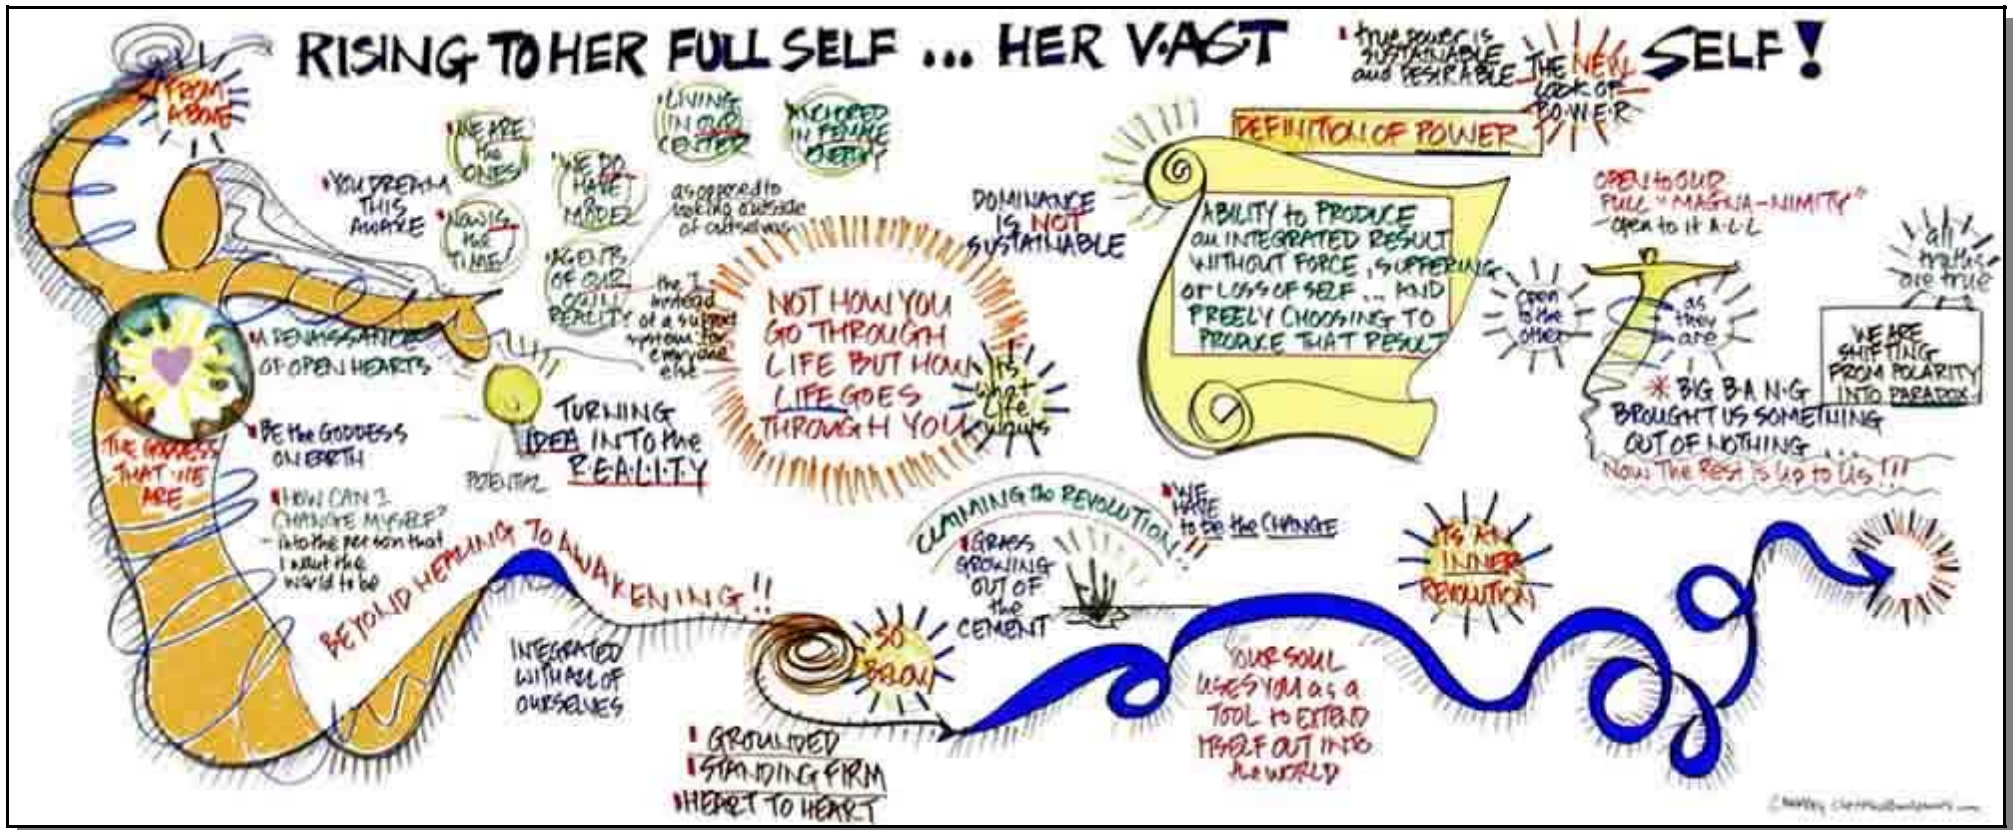 RISING TO HER FULL SELF ... HER V·A·S·T SELF!
• true power is
SUSTAINABLE
and DESIRABLE
THE NEW
LOOK OF
P·O·W·E·R
FROM
ABOVE
• YOU DREAM
THIS
AWAKE
• WE ARE
the
ONES!
• NOW IS
the
TIME!
• WE DO
HAVE
A
MODEL
• LIVING
IN OUR
CENTER
ANCHORED
IN FEMALE
ENERGY
as opposed to
looking outside
of ourselves
• AGENTS
OF OUR
OWN
REALITY
the I
instead
of a support
system for
everyone
else
• A RENAISSANCE
OF OPEN HEARTS
• BE the GODDESS
ON EARTH
THE GODDESS
THAT WE
ARE
• HOW CAN I
CHANGE MYSELF?
– into the person that
I want the
world to be
POTENTIAL
TURNING
IDEA INTO the
R·E·A·L·I·T·Y
NOT HOW YOU
GO THROUGH
LIFE BUT HOW
LIFE GOES
THROUGH YOU
It's
what
Life
wants
DOMINANCE
IS NOT
SUSTAINABLE
DEFINITION OF POWER
ABILITY to PRODUCE
an INTEGRATED RESULT
WITHOUT FORCE, SUFFERING
or LOSS OF SELF ... AND
FREELY CHOOSING TO
PRODUCE THAT RESULT
OPEN to OUR
FULL "MAGNA-NIMITY"
– open to it A·L·L
open
to the
other
as
they
are
all
truths
are true
WE ARE
SHIFTING
FROM POLARITY
INTO PARADOX
* BIG B·A·N·G
BROUGHT US SOMETHING
OUT OF NOTHING ...
NOW The REST is up to us!!!
BEYOND HEALING TO AWAKENING!!
INTEGRATED
WITH ALL OF
OURSELVES
SO
BELOW
• GROUNDED
• STANDING FIRM
• HEART TO HEART
CLAIMING the REVOLUTION!!
• GRASS
GROWING
OUT OF
the
CEMENT
• WE
HAVE
to be the CHANGE
IT'S AN
INNER
REVOLUTION
YOUR SOUL
USES YOU as a
TOOL to EXTEND
ITSELF OUT INTO
the WORLD